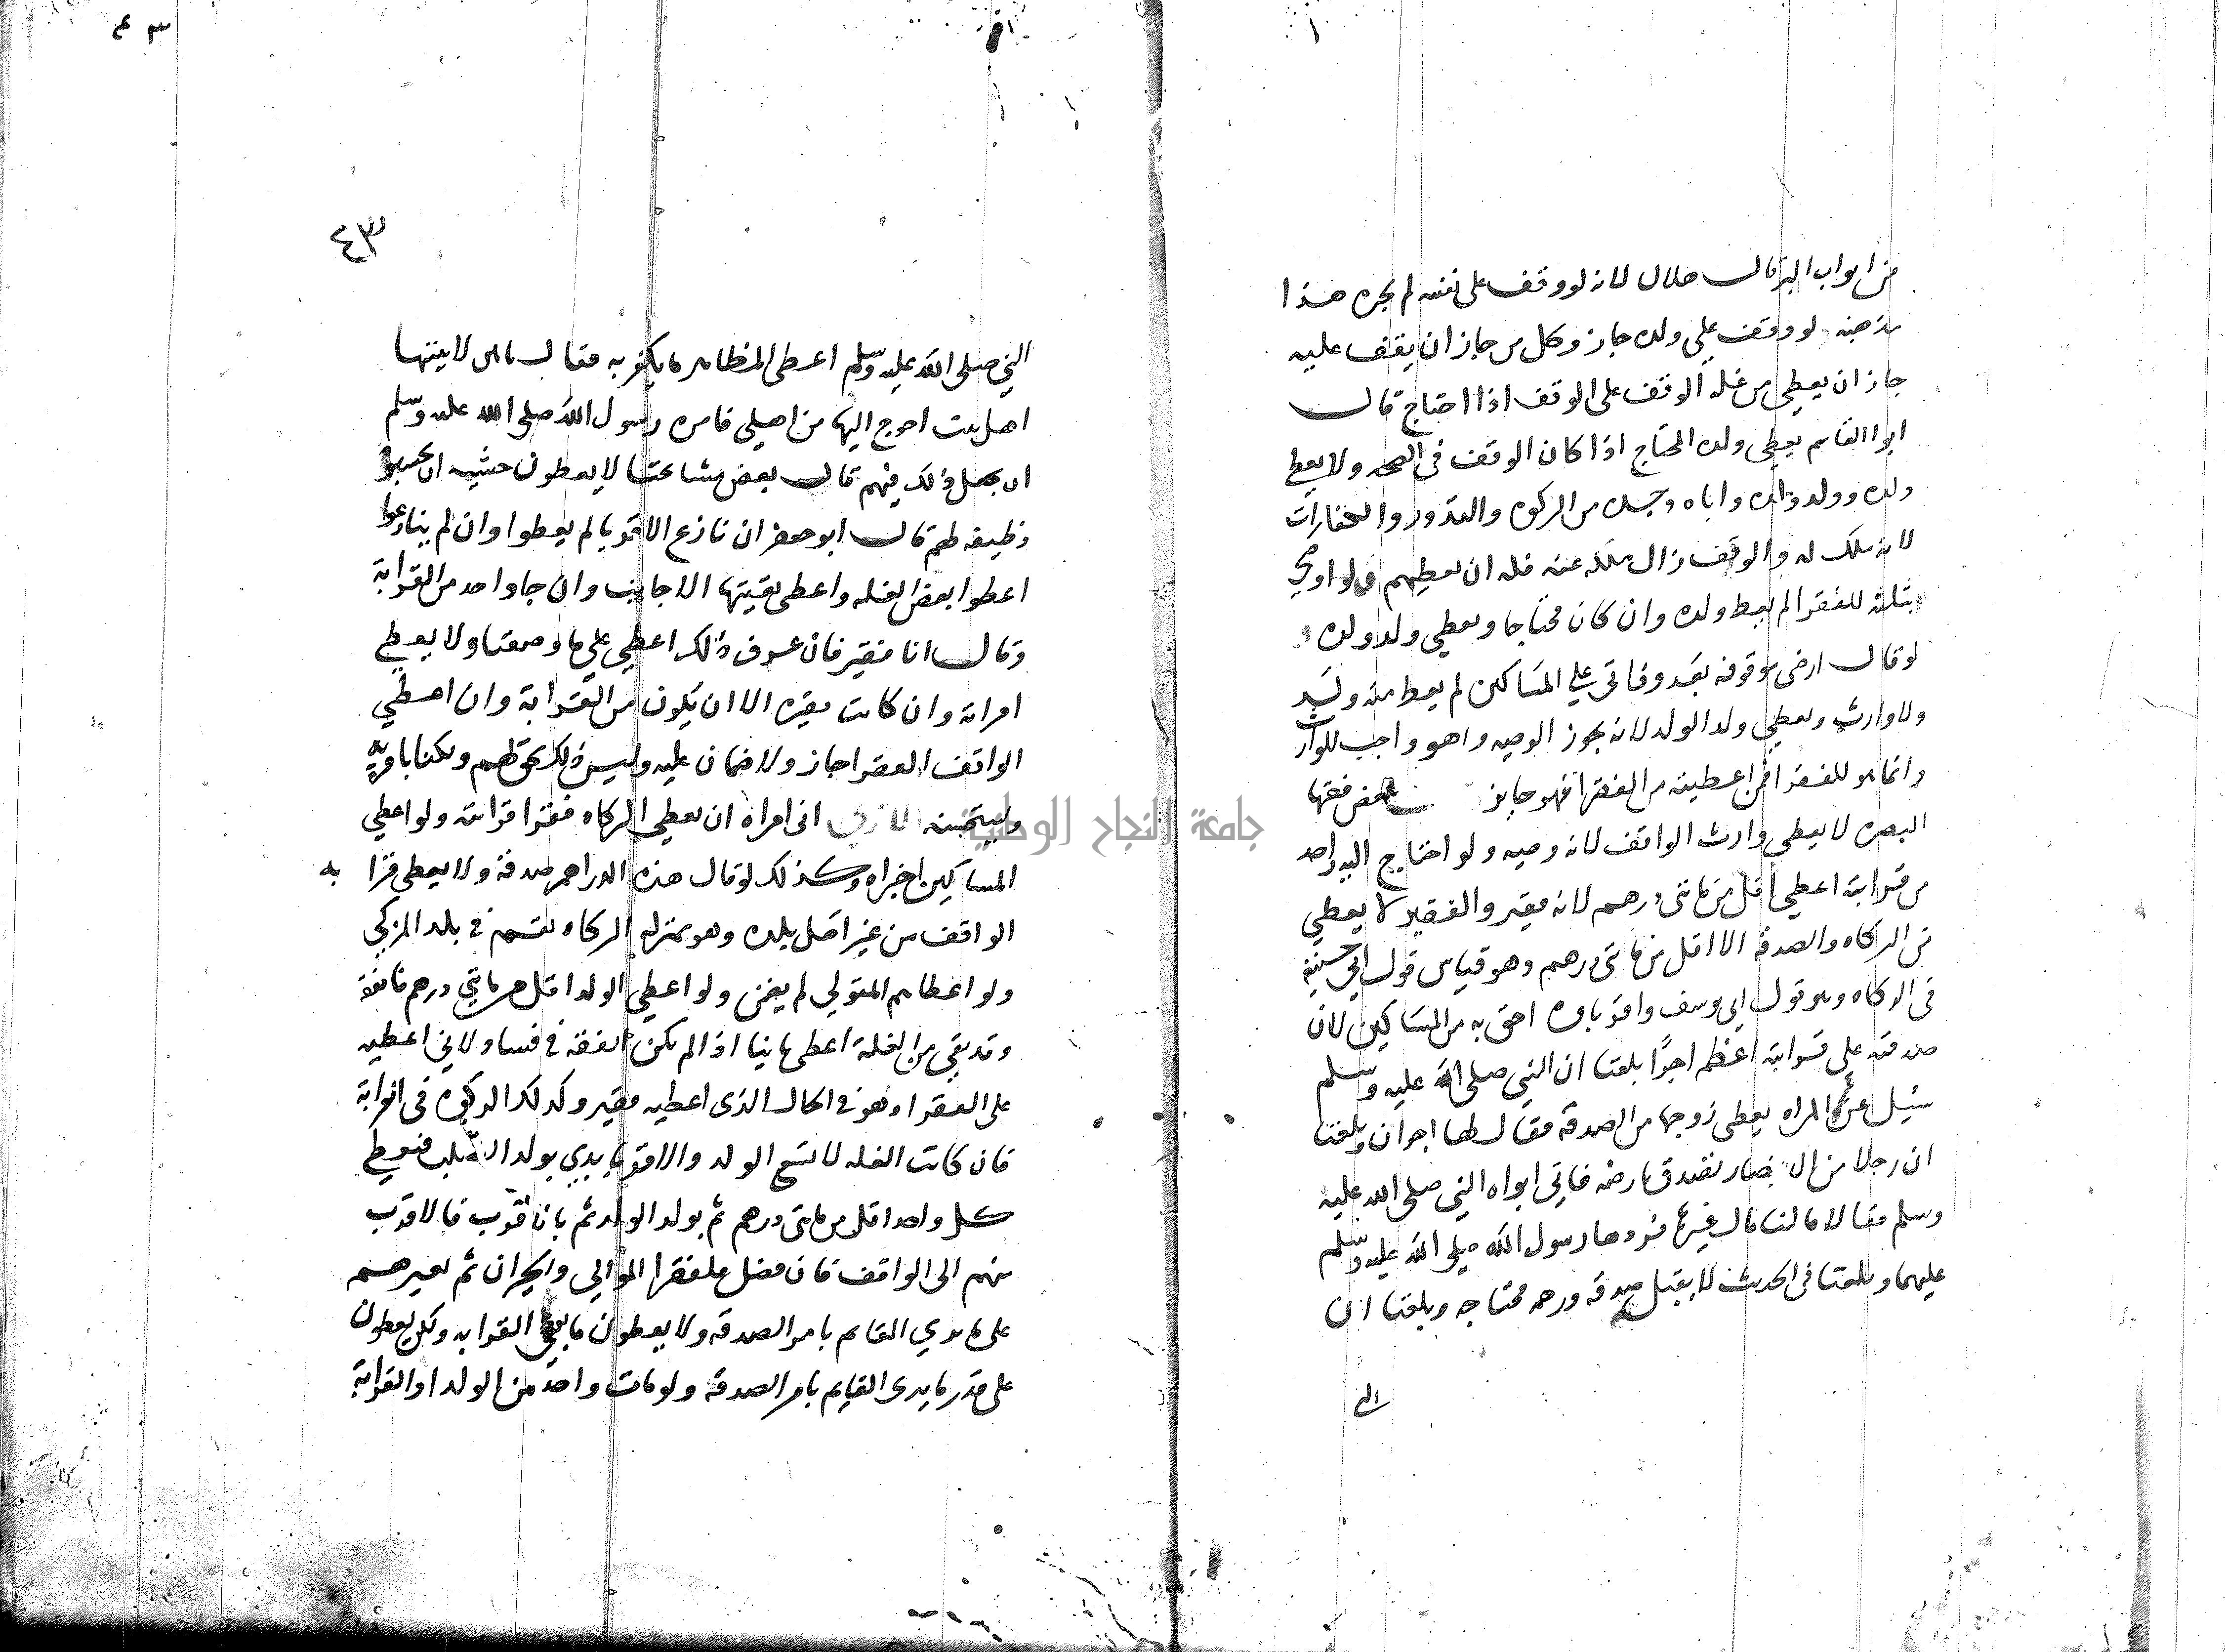 من ابواب البر قال هلال لانه لو وقف على نفسه لم يجزه هذا
مذهبه لو وقف علي ولده جاز وكل من جاز ان يقف عليه
جاز ان يعطي من غلة الوقف على الوقف اذا احتاج قال
ابوا القاسم يعطى ولده المحتاج اذا كان الوقف في الصحه ولا يعط
ولده وولد ولده واباه وجده من الزكوه والنذور والكفارات
لانه ملك له والوقف زال ملكه عنه فله ان يعطيهم ولو اوصي
بثلثه للفقرا لم يعط ولده وان كان محتاجا ويعطي ولد ولده
لو قال ارضى موقوفه بعد وفاتى علي المساكين لم يعط منه ولد
ولا وارث ويعطي ولد الولد لانه يجوز الوصيه واهو واجب للوارث
وانما هو للفقرا فمن اعطيته من الفقرا فهو جايز بعض فقها
البصره لا يعطي وارث الواقف لانه وصيه ولو احتاج اليه واحد
من قرابته اعطي اقل من مائتى درهم لانه فقير والفقير لا يعطي
من الزكاه والصدقه الا اقل من مائتى درهم وهو قياس قول ابي حنيفة
في الزكاه وهو قول ابي يوسف واقرباوه احق به من المساكين لان
صدقته علي قرابته اعظم اجرًا بلغنا ان النبي صلى الله عليه وسلم
سُيل عن المراه يعطي زوجها من الصدقة فقال لها اجران وبلغنا
ان رجلا من الانصار تصدق بارضه فاتي ابواه النبي صلى الله عليه
وسلم فقالا ما لنا مال غيرها فردها رسول الله صلي الله عليه وسلم
عليهما وبلغنا في الحديث لا يقبل صدقه ورحمه محتاجه وبلغنا ان
النبي
٤٣
النبي صلى الله عليه وسلم اعطى المظاهر ما يكفر به فقال ما بين لابيتها
اهل بيت احوج اليها من اهلي فامره رسول الله صلى الله عليه وسلم
ان يجعل ذلك فيهم قال بعض مشائخنا لا يعطون خشية ان يحسبوا
وظيفه لهم قال ابو جعفر ان نازع الاقربا لم يعطوا وان لم ينازعوا
اعطوا بعض الغله واعطى بقيتها الاجانب وان جا واحد من القرابة
وقال انا فقير فان عرف ذلك اعطي علي ما وصفنا ولا يعطي
امراته وان كانت فقيره الا ان يكون من القرابة وان اعطي
الواقف الفقرا جاز ولا ضمان عليه وليس ذلك بحق لهم ولكنا نامر به
ونستحسنه اني امراه ان يعطي الزكاه فقرا قرابته ولو اعطي
المساكين اجزاه وكذلك لو قال هذه الدراهم صدقة ولا يعطى قرا به
الواقف من غير اهل بلده وهو بمنزله الزكاه تقسم في بلد المزكي
ولو اعطاهم المتولي لم يضمن ولو اعطي الولد اقل من مايتي درهم فانفقه
وقد بقي من الغلة اعطى ثانيا اذا لم يكن انفقه في فساد لاني اعطيه
على الفقر وهو في الحال الذى اعطيه فقير وكذلك الزكوه في القرابة
فان كانت الغله لا تسع الولد والاقربا بدي بولد الصلب فيعطي
كل واحد اقل من مائتى درهم ثم بولد الولد ثم بان اقرب فالاقرب
منهم الى الواقف فان فضل فلفقرا الموالي والجيران ثم لغيرهم
على ما يري القايم بامر الصدقه ولا يعطون ما يعطي القرابه ولكن يعطون
على قدر ما يرى القايم بامر الصدقه ولو مات واحد من الولد او القرابة
جامعة النجاح الوطنية